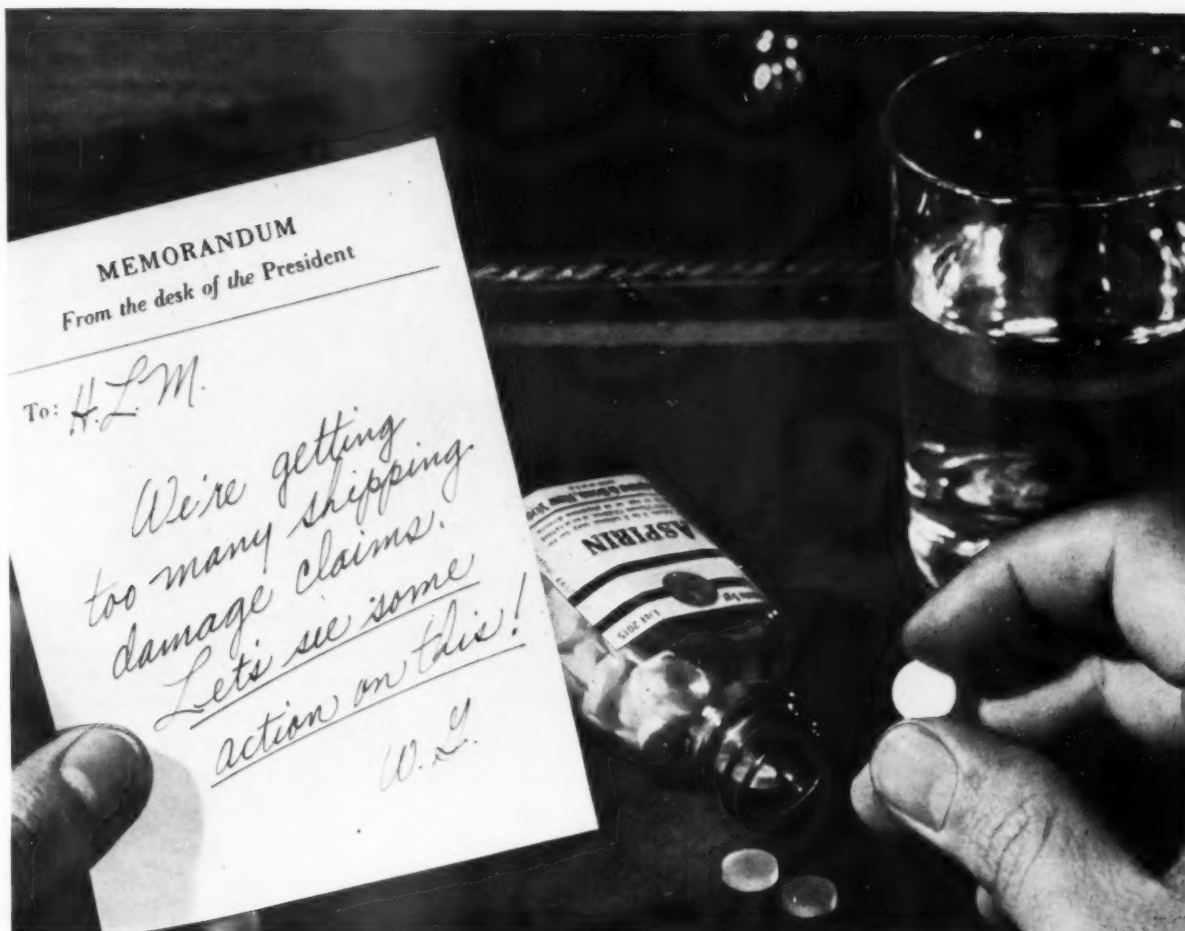 MEMORANDUM
From the desk of the President
To: H.L.M.
We're getting
too many shipping
damage claims.
Let's see some
action on this!
W.G.
ASPIRIN
List 2015